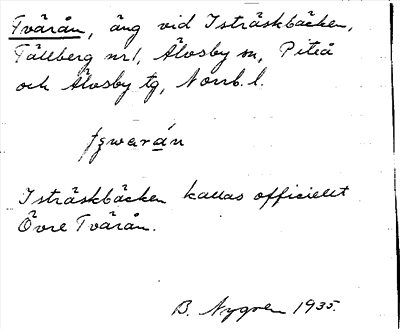 Tvärån, äng vid Isträskbäcken,
Fällberg nr 1, Älvsby sn, Piteå
och Älvsby tg, Norrb. l.
Isträskbäcken kallas officiellt
Övre Tvärån.
B. Nygren 1935.